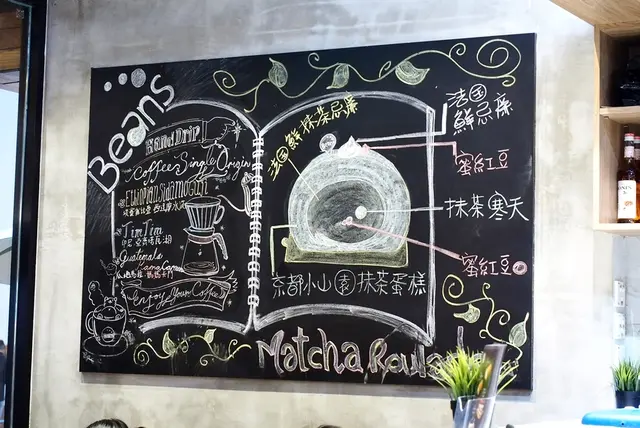 Beans
Hand Drip
Coffee Single Origin
Ethiopian Sidamo Guji
Tim Tim
Guatemala
Enjoy Your Coffee
法国鮮抹茶忌廉
法国
鮮忌廉
蜜紅豆
抹茶寒天
蜜紅豆
京都小山園抹茶蛋糕
Matcha